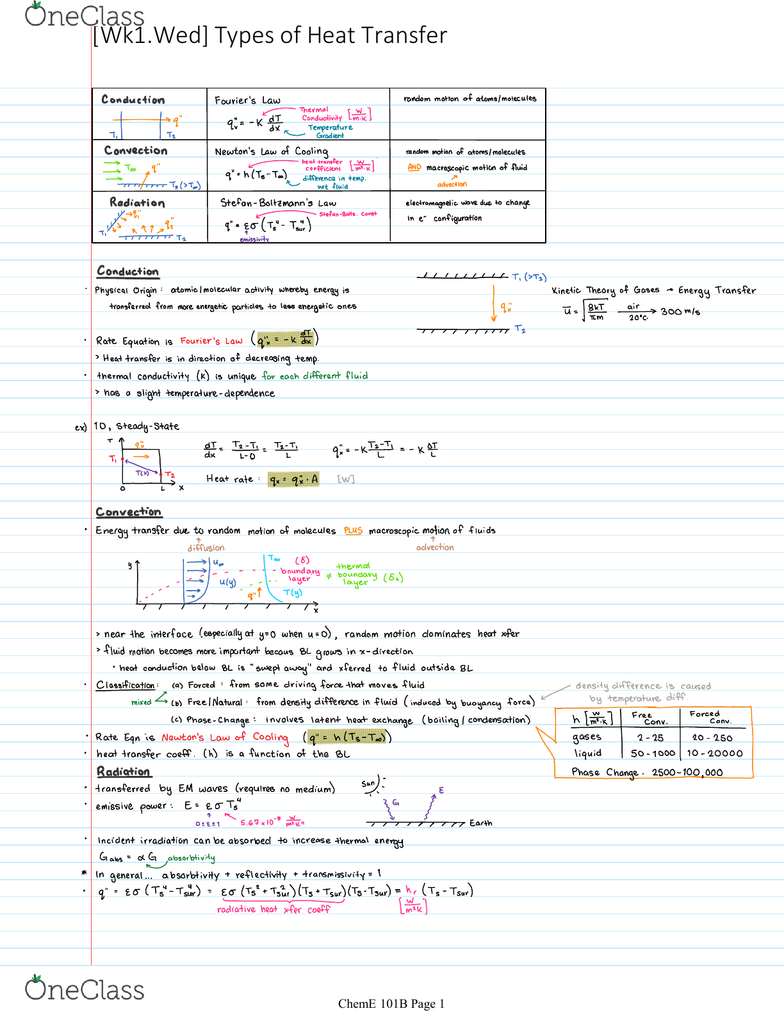 OneClass
[Wk1.Wed] Types of Heat Transfer
Conduction
q"
T₁ T₂
Fourier's Law
q"ₓ = -K dT/dx
Thermal Conductivity [W/m·K]
Temperature Gradient
random motion of atoms/molecules
Convection
T∞ q"
Ts (> T∞)
Newton's Law of Cooling
q" = h (Ts - T∞)
heat transfer coefficient [W/m²·K]
difference in temp.
wrt fluid
random motion of atoms/molecules
AND macroscopic motion of fluid
advection
Radiation
q"₁ q"₂
T₁ T₂
Stefan-Boltzmann's Law
Stefan-Boltz. Const
q" = εσ (Ts⁴ - Tsur⁴)
emissivity
electromagnetic wave due to change
in e⁻ configuration
Conduction
· Physical Origin : atomic/molecular activity whereby energy is
transferred from more energetic particles to less energetic ones
T₁ (>T₂)
q"ₓ
T₂
Kinetic Theory of Gases → Energy Transfer
u̅ = √(8kT/πm) air 20°C → 300 m/s
· Rate Equation is Fourier's Law (q"ₓ = -K dT/dx)
> Heat transfer is in direction of decreasing temp.
· thermal conductivity (K) is unique for each different fluid
> has a slight temperature-dependence
ex) 1D, Steady-State
T q"ₓ
T₁
T(x) T₂
0 L x
dT/dx = T₂-T₁/L-0 = T₂-T₁/L q"ₓ = -K T₂-T₁/L = -K ΔT/L
Heat rate : qₓ = q"ₓ · A [W]
Convection
· Energy transfer due to random motion of molecules PLUS macroscopic motion of fluids
diffusion advection
y u∞ T∞ (δ)
boundary layer ≠ thermal boundary layer (δₜ)
u(y) q" T(y)
x
> near the interface (especially at y=0 when u=0), random motion dominates heat xfer
> fluid motion becomes more important becaus BL grows in x-direction
· heat conduction below BL is "swept away" and xferred to fluid outside BL
· Classification : (a) Forced : from some driving force that moves fluid
mixed (b) Free/Natural : from density difference in fluid (induced by buoyancy force)
density difference is caused
by temperature diff.
(c) Phase-Change : involves latent heat exchange (boiling/condensation)
· Rate Eqn is Newton's Law of Cooling (q" = h (Ts - T∞))
· heat transfer coeff. (h) is a function of the BL
h [W/m²·K] Free Conv. Forced Conv.
gases 2-25 20-250
liquid 50-1000 10-20000
Phase Change : 2500-100,000
Radiation
· transferred by EM waves (requires no medium)
· emissive power : E = εσTs⁴
0≤ε≤1 5.67×10⁻⁸ W/m²K⁴
Sun
G E
Earth
· Incident irradiation can be absorbed to increase thermal energy
Gabs = αG absorbtivity
* In general... absorbtivity + reflectivity + transmissivity = 1
· q" = εσ (Ts⁴ - Tsur⁴) = εσ (Ts² + Tsur²)(Ts + Tsur)(Ts - Tsur) = hr (Ts - Tsur)
radiative heat xfer coeff [W/m²K]
OneClass
ChemE 101B Page 1